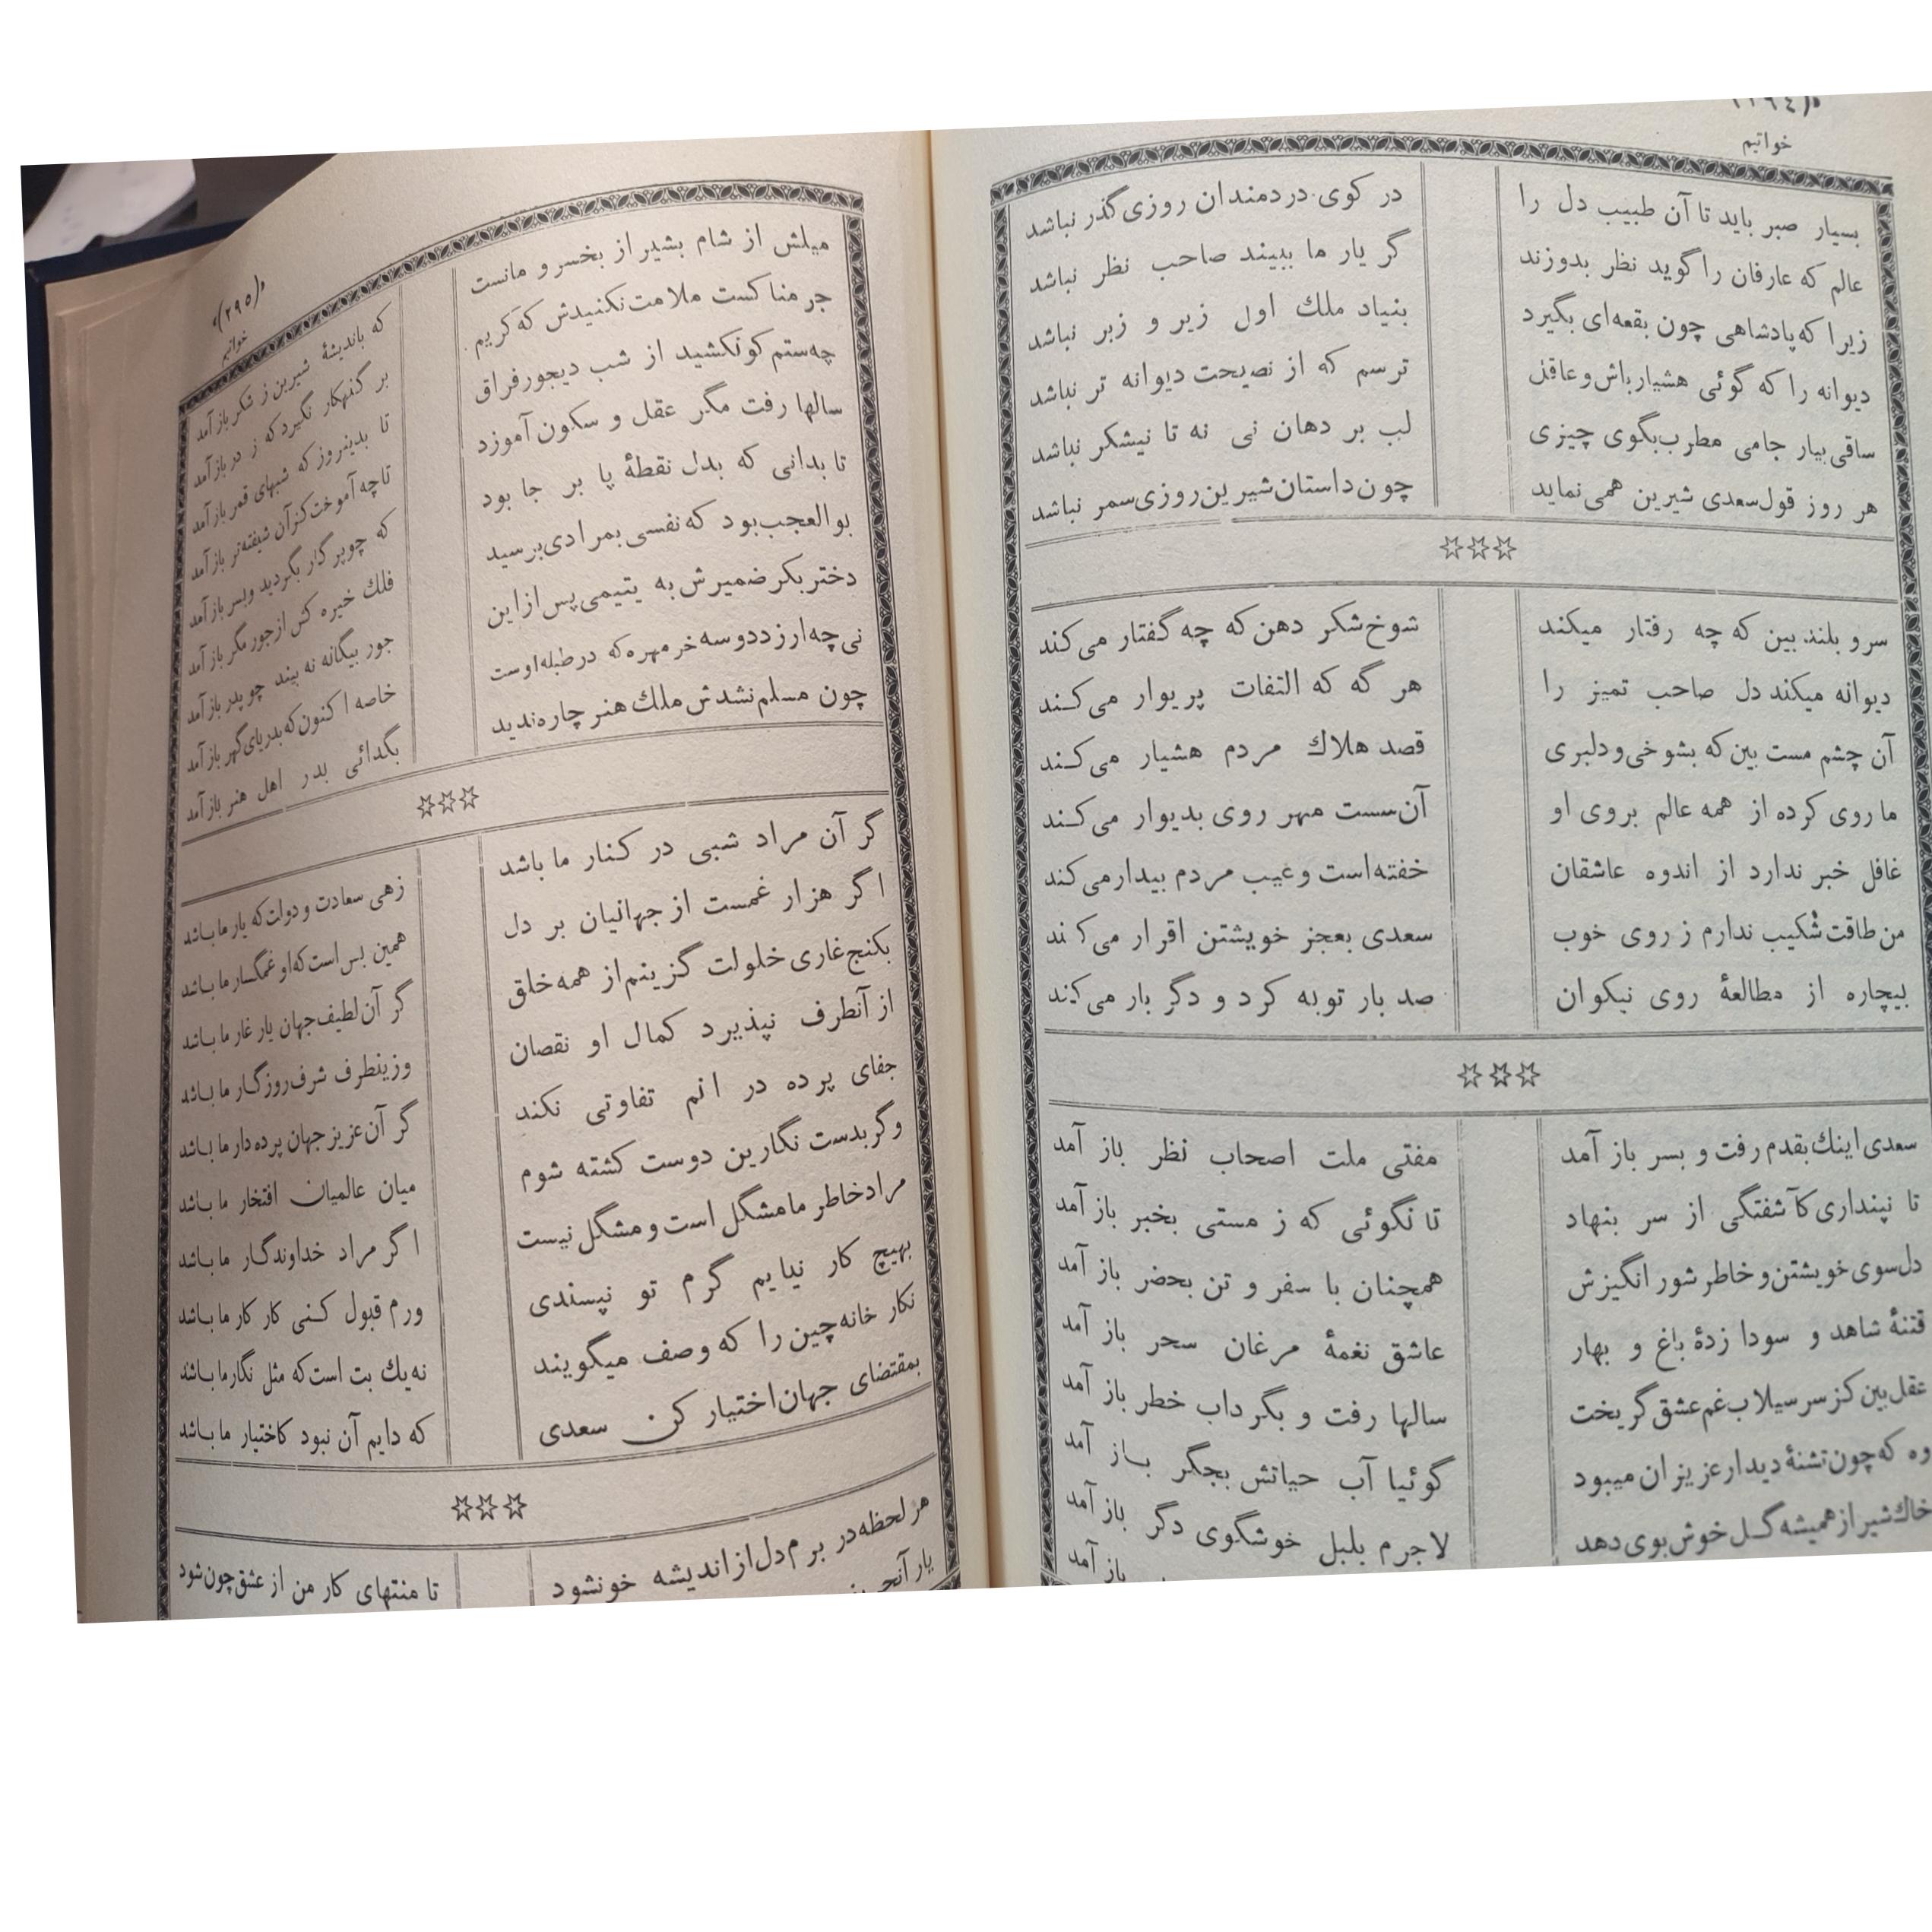 خواتیم
بسیار صبر باید تا آن طبیب دل را در کوی دردمندان روزی گذر نباشد
عالم که عارفان را گوید نظر بدوزند گر یار ما ببیند صاحب نظر نباشد
زیرا که پادشاهی چون بقعه‌ای بگیرد بنیاد ملك اول زیر و زبر نباشد
دیوانه را که گوئی هشیار باش و عاقل ترسم که از نصیحت دیوانه تر نباشد
ساقی بیار جامی مطرب بگوی چیزی لب بر دهان نی نه تا نیشکر نباشد
هر روز قول سعدی شیرین همی نماید چون داستان شیرین روزی سمر نباشد
☆☆☆
سرو بلند بین که چه رفتار میکند شوخ شکر دهن که چه گفتار می کند
دیوانه میکند دل صاحب تمیز را هر گه که التفات پریوار می کند
آن چشم مست بین که بشوخی و دلبری قصد هلاك مردم هشیار می کند
ما روی کرده از همه عالم بروی او آن سست مهر روی بدیوار می کند
غافل خبر ندارد از اندوه عاشقان خفته است و عیب مردم بیدار می کند
من طاقت شکیب ندارم ز روی خوب سعدی بعجز خویشتن اقرار می کند
بیچاره از مطالعهٔ روی نیکوان صد بار توبه کرد و دگر بار می کند
☆☆☆
سعدی اینك بقدم رفت و بسر باز آمد مفتی ملت اصحاب نظر باز آمد
تا نپنداری کآشفتگی از سر بنهاد تا نگوئی که ز مستی بخبر باز آمد
دل سوی خویشتن و خاطر شور انگیزش همچنان با سفر و تن بحضر باز آمد
فتنهٔ شاهد و سودا زدهٔ باغ و بهار عاشق نغمهٔ مرغان سحر باز آمد
عقل بین کز سر سیلاب غم عشق گریخت سالها رفت و بگرداب خطر باز آمد
وه که چون تشنهٔ دیدار عزیزان میبود گوئیا آب حیاتش بجگر باز آمد
خاك شیراز همیشه گل خوش بوی دهد لاجرم بلبل خوشگوی دگر باز آمد
باز آمد
(۲۹۵)
خواتیم
میلش از شام بشیراز بخسرو مانست که باندیشهٔ شیرین ز شکر باز آمد
جرمناکست ملامت نکنیدش که کریم بر گنهکار نگیرد که ز در باز آمد
چه ستم کو نکشید از شب دیجور فراق تا بدینروز که شبهای قمر باز آمد
سالها رفت مگر عقل و سکون آموزد تا چه آموخت کز آن شیفته تر باز آمد
تا بدانی که بدل نقطهٔ پا بر جا بود که چو پرگار بگردید و بسر باز آمد
بوالعجب بود که نفسی بمرادی برسید فلك خیره کش از جور مگر باز آمد
دختر بکر ضمیرش به یتیمی پس از این جور بیگانه نه بیند چو پدر باز آمد
نی چه ارزد دو سه خر مهره که در طبله اوست خاصه اکنون که بدریای گهر باز آمد
چون مسلم نشدش ملك هنر چاره ندید بگدائی بدر اهل هنر باز آمد
☆☆☆
گر آن مراد شبی در کنار ما باشد زهی سعادت و دولت که یار ما باشد
اگر هزار غمست از جهانیان بر دل همین بس است که او غمگسار ما باشد
بکنج غاری خلوت گزینم از همه خلق گر آن لطیف جهان یار غار ما باشد
از آنطرف نپذیرد کمال او نقصان وزینطرف شرف روزگار ما باشد
جفای پرده در انم تفاوتی نکند گر آن عزیز جهان پرده دار ما باشد
و گر بدست نگارین دوست کشته شوم میان عالمیان افتخار ما باشد
مراد خاطر ما مشگل است و مشگل نیست اگر مراد خداوندگار ما باشد
بهیچ کار نیایم گرم تو نپسندی ورم قبول کنی کار کار ما باشد
نکار خانه چین را که وصف میگویند نه یك بت است که مثل نگار ما باشد
بمقتضای جهان اختیار کن سعدی که دایم آن نبود کاختیار ما باشد
☆☆☆
هر لحظه در برم دل از اندیشه خونشود تا منتهای کار من از عشق چون شود
یار